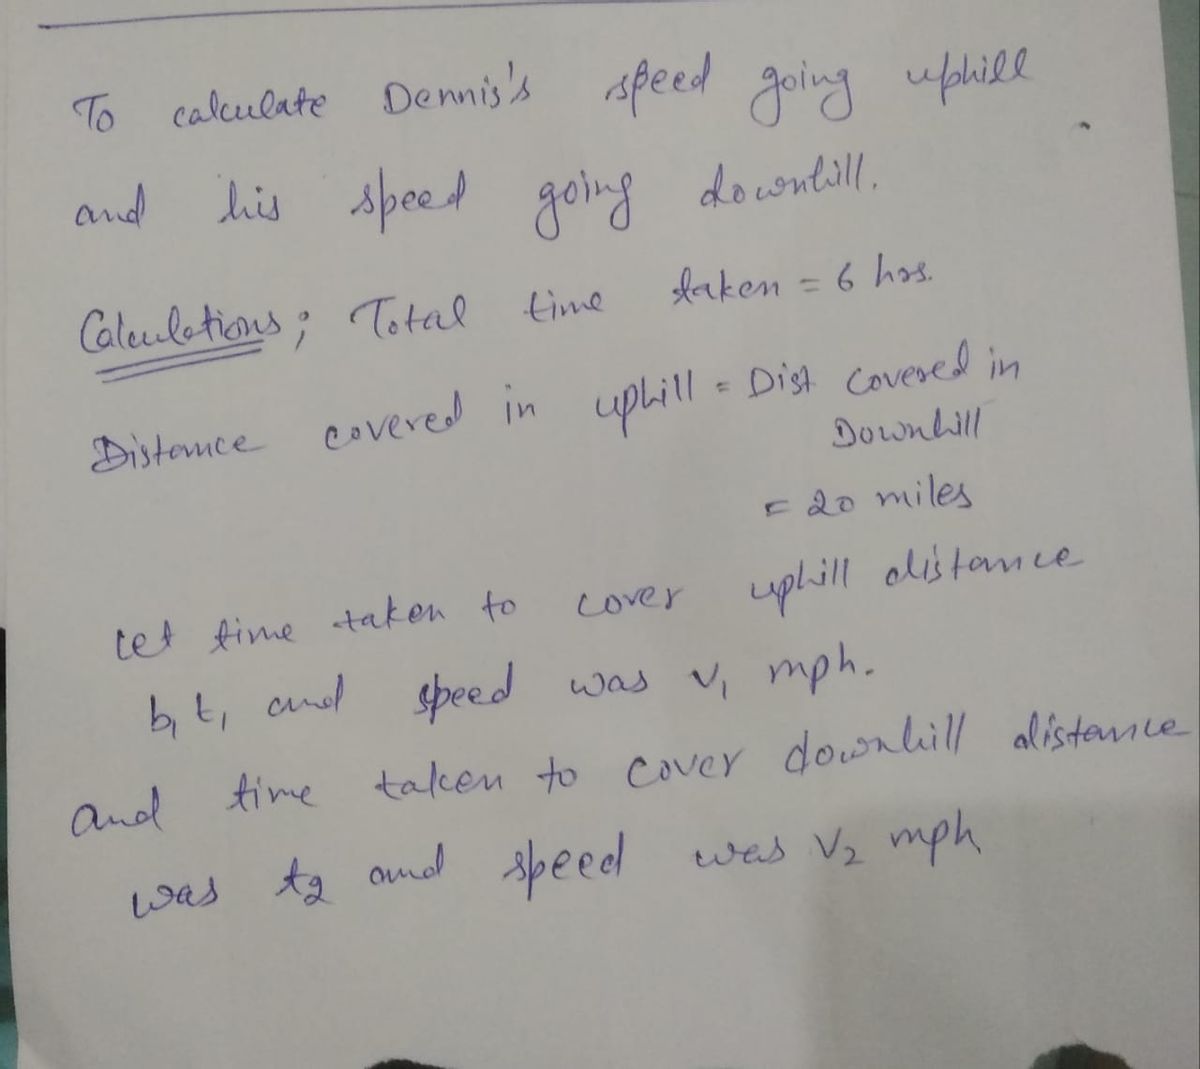 To calculate Dennis's speed going uphill
and his speed going downhill.
Calculations; Total time taken = 6 hrs.
Distance covered in uphill = Dist covered in
Downhill
= 20 miles
let time taken to cover uphill distance
b, t, and speed was v₁ mph.
and time taken to cover downhill distance
was t₂ and speed was V₂ mph